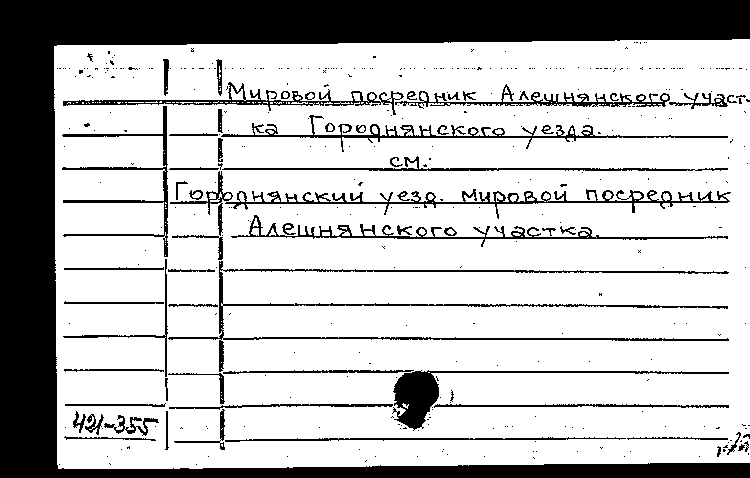 Мировой посредник Алешнянского участ-
ка Городнянского уезда.
см.
Городнянский уезд. мировой посредник
Алешнянского участка.
421-355